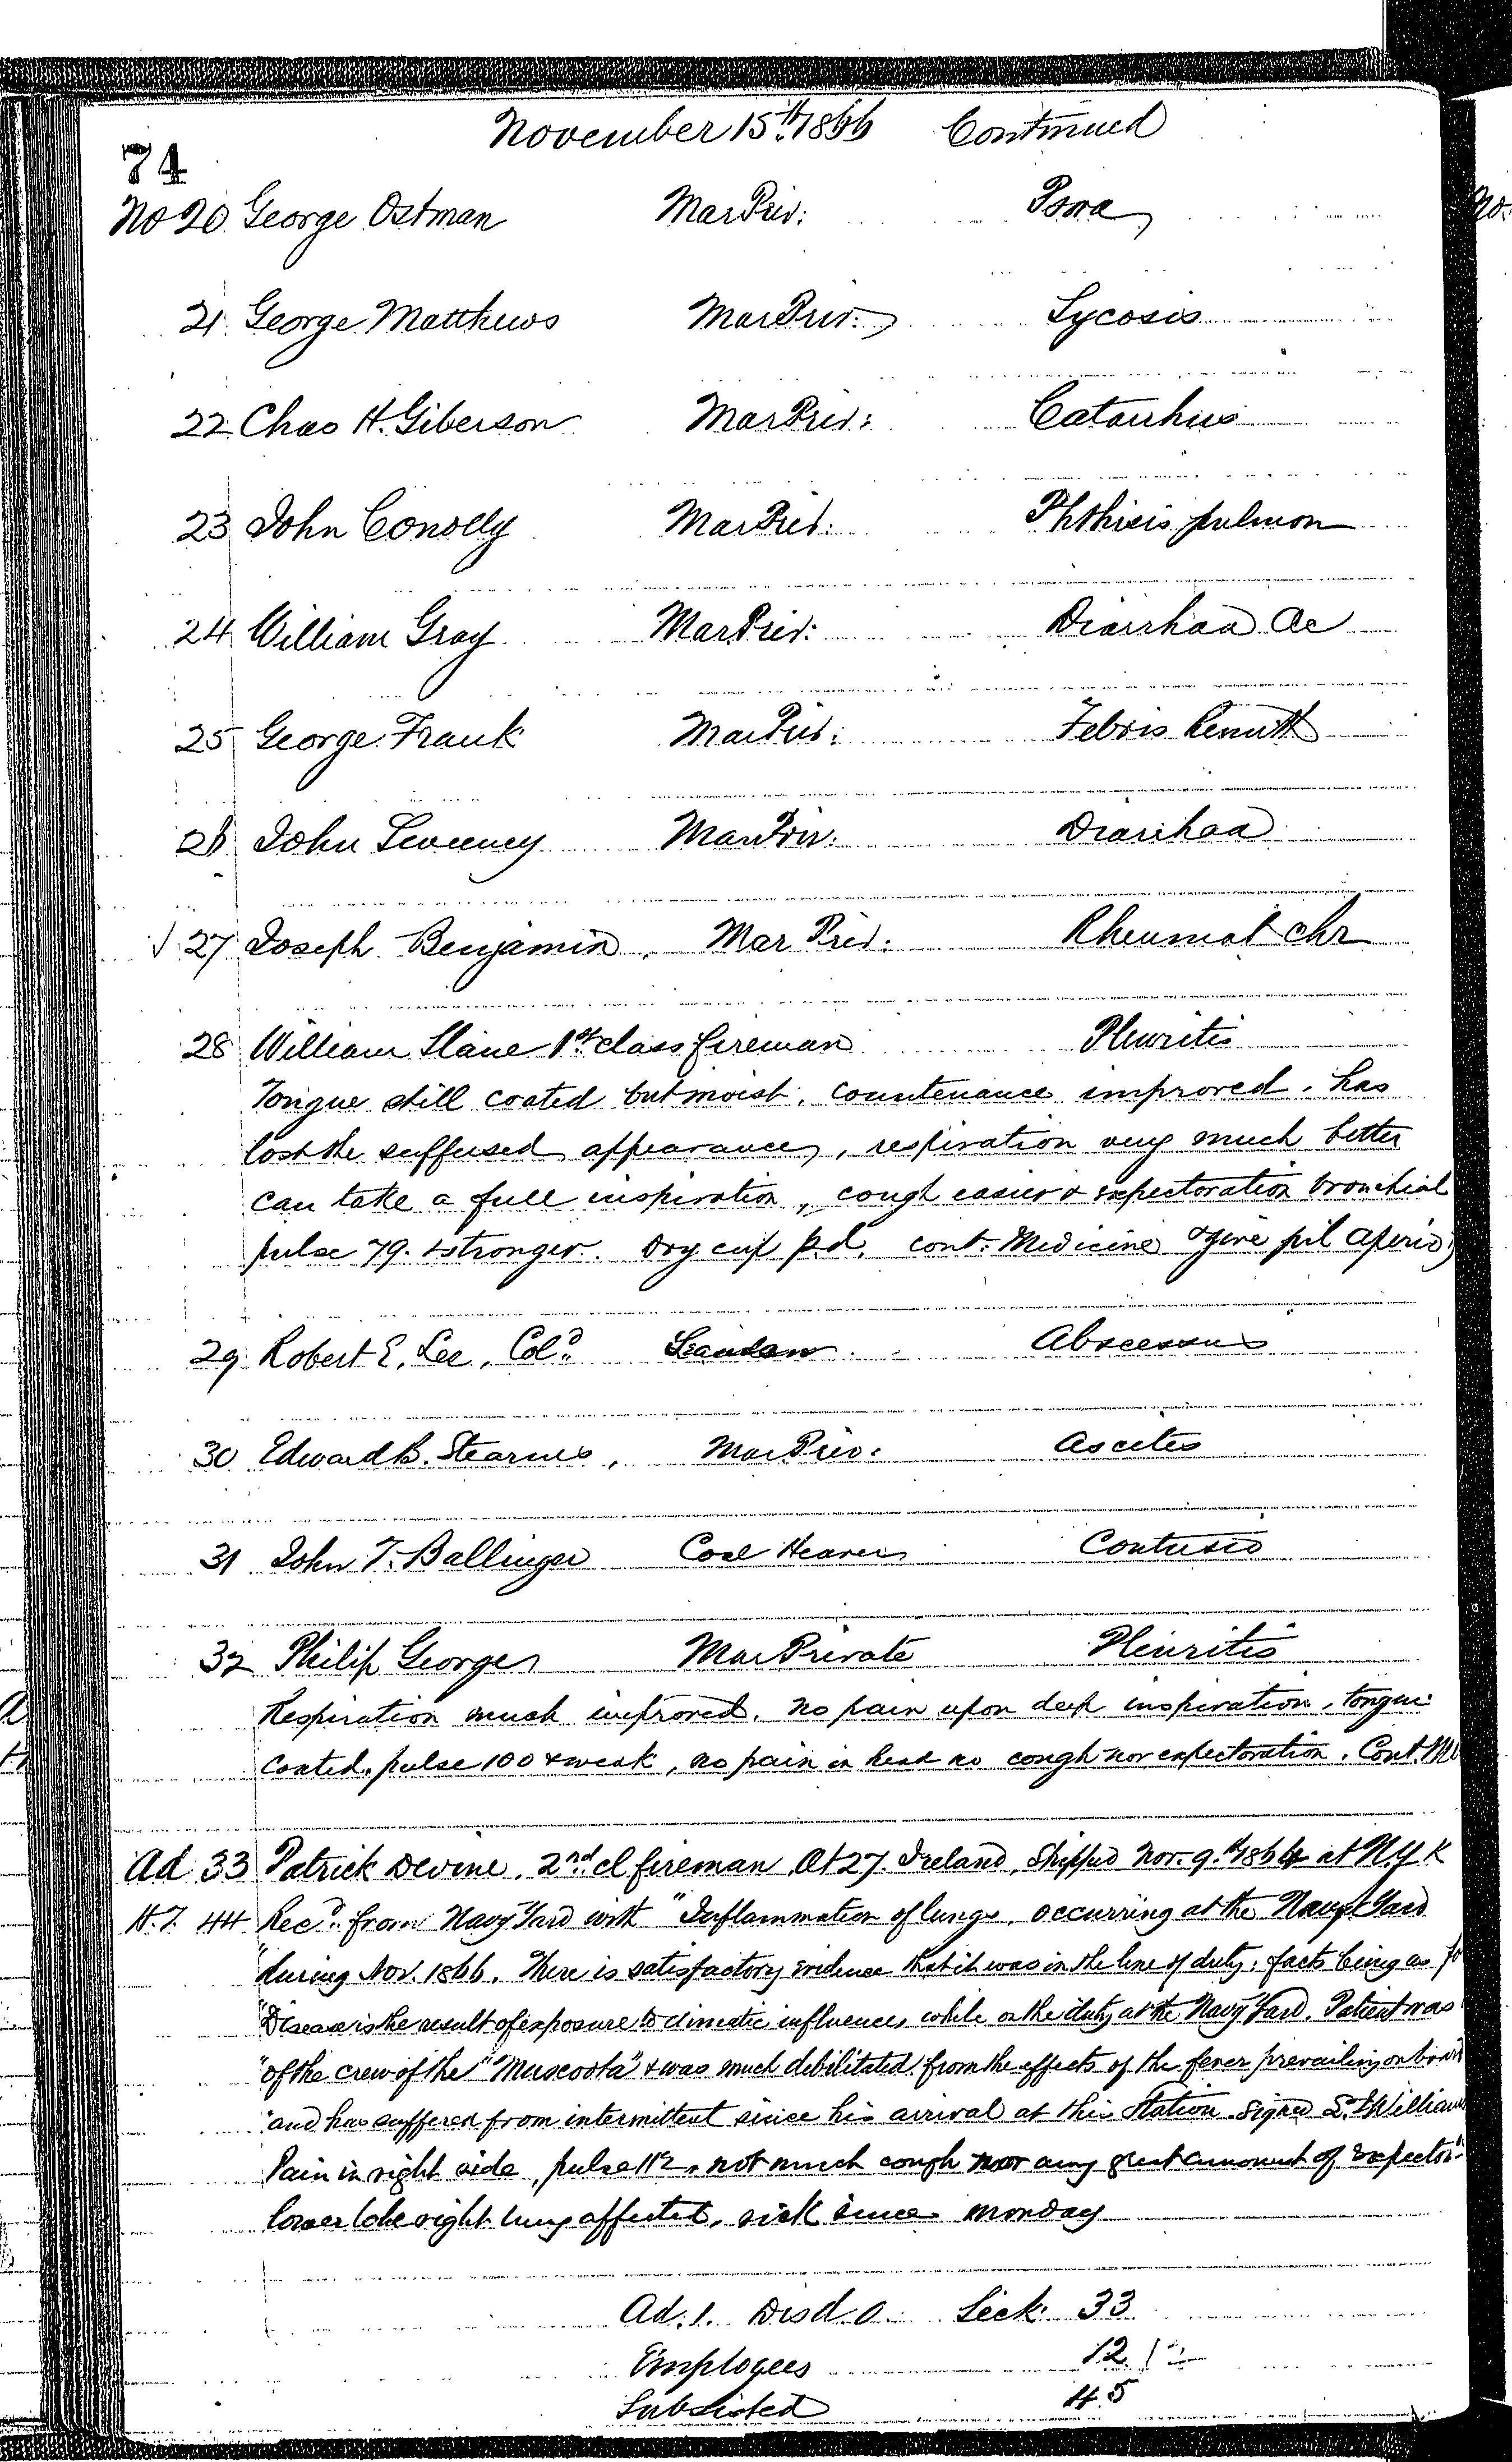 November 15th. 1866 Continued
74
No 20 George Ostman Mar Priv: Psora
21. George Matthews Mar Priv: Sycosis
22 Chas H. Giberson Mar Priv: Catarrhus
23 John Conolly Mar Priv: Phthisis pulmon
24 William Gray Mar Priv: Diarrhœa Ac
25 George Frank Mar Priv: Febris Remitt
26 John Sweeney Mar Priv: Diarrhœa
√ 27 Joseph Benjamin Mar Priv: Rheumat chr
28 William Slane 1st. class fireman Pleuritis
Tongue still coated but moist, countenance improved. has
lost the suffused appearance, respiration very much better
can take a full inspiration, cough easier & expectoration bronchial
pulse 79. & stronger. Dry cup p.d. cont: Medicine & give pil aperis
29 Robert E. Lee, Cold. Landsn Abscessus
30 Edward B. Stearnes, Mar Priv: Ascites
31 John T. Ballinger Coal Heaver Contusio
32 Philip George Mar Private Pleuritis
Respiration much improved. No pain upon deep inspiration, tongue
coated. pulse 100 & weak, no pain in head no cough nor expectoration. Cont. Me
Ad 33 Patrick Devine. 2nd. cl fireman At 27. Ireland, Shipped Nov. 9.th 1864 at N.Y k
H.T. 44 Recd. from Navy Yard with "Inflammation of lungs, occurring at the Navy Yard
"during Nov. 1866. There is satisfactory evidence that it was in the line of duty; facts being as fo
"Disease is the result of exposure to climatic influences while on the duty at the Navy Yard. Patient was
"of the crew of the "Muscoota" & was much debilitated from the effects of the fever prevailing on board
"and has suffered from intermittent since his arrival at this Station. Signed S. L. Williams
Pain in right side, pulse 112. not much cough nor any great amount of expector"
lower lobe right lung affected, sick since monday
Ad. 1. Disd. 0. Sick. 33
Employees 12
Subsisted 45